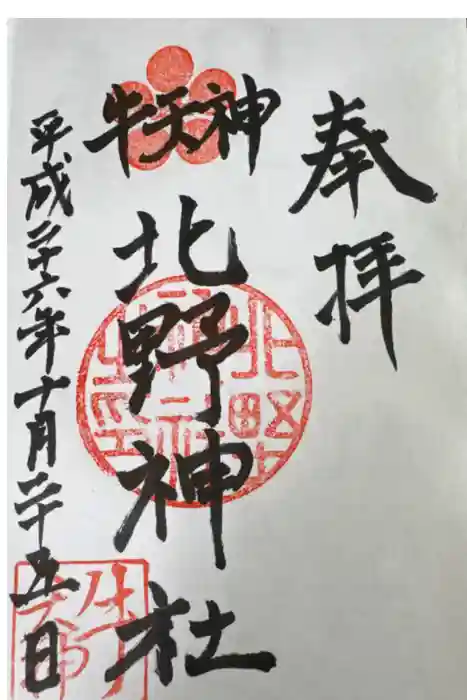 奉拝
牛天神
北野神社
平成二十六年十月二十五日
北野神社之印